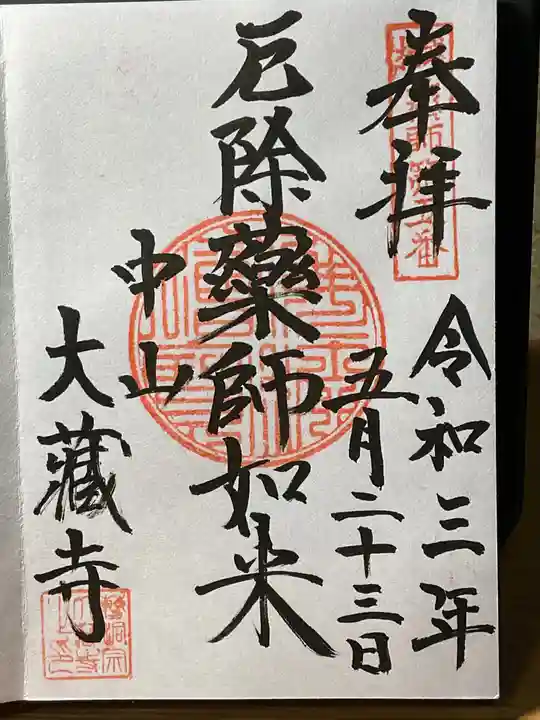 奉拝
令和三年
五月二十三日
厄除薬師如来
中山
大蔵寺